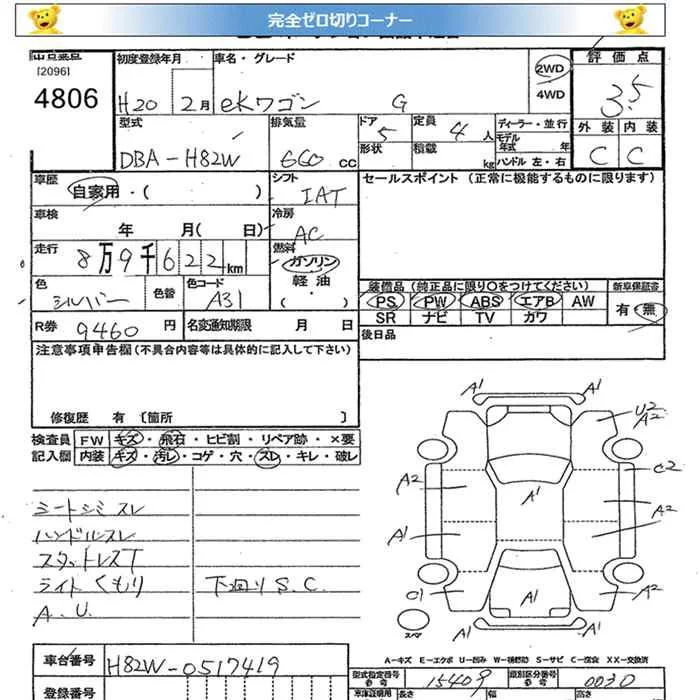 完全ゼロ切りコーナー
[2096]
4806
初度登録年月
H20 2月
車名・グレード
eKワゴン G
2WD
4WD
評価点
3.5
外装 内装
C C
型式
DBA-H82W
排気量
660 cc
ドア 5
形状
定員 4人
積載 kg
ディーラー・並行
モデル年式 年
ハンドル 左・右
車歴
自家用・( )
シフト
IAT
セールスポイント (正常に機能するものに限ります)
車検
年 月( 日)
冷房
AC
走行
8万9千622km
燃料
ガソリン
軽油
・( )
色
シルバー
色替
色コード
A31
装備品 (純正品に限り○をつけてください)
PS PW ABS エアB AW
SR ナビ TV カワ
新車保証書
有・無
R券 9460円
名変通知期限 月 日
後日品
注意事項申告欄(不具合内容等は具体的に記入して下さい)
修復歴 有 [箇所 ]
検査員 FW キズ・飛石・ヒビ割・リペア跡・×要
記入欄 内装 キズ・汚レ・コゲ・穴・スレ・キレ・破レ
シートシミスレ
ハンドルスレ
スタッドレスT
ライトくもり 下廻りS.C.
A.U.
A1 A1
U2
A2
A2 A1 C2
A2
A1
C1 A1 A2
スペア
A1 A1
A-キズ E-エクボ U-凹み W-補修跡 S-サビ C-腐食 XX-交換済
車台番号 H82W-0517419
型式指定番号 参考 15409
類別区分番号 参考 0030
登録番号
車庫証明用 長さ 幅 高さ
参考